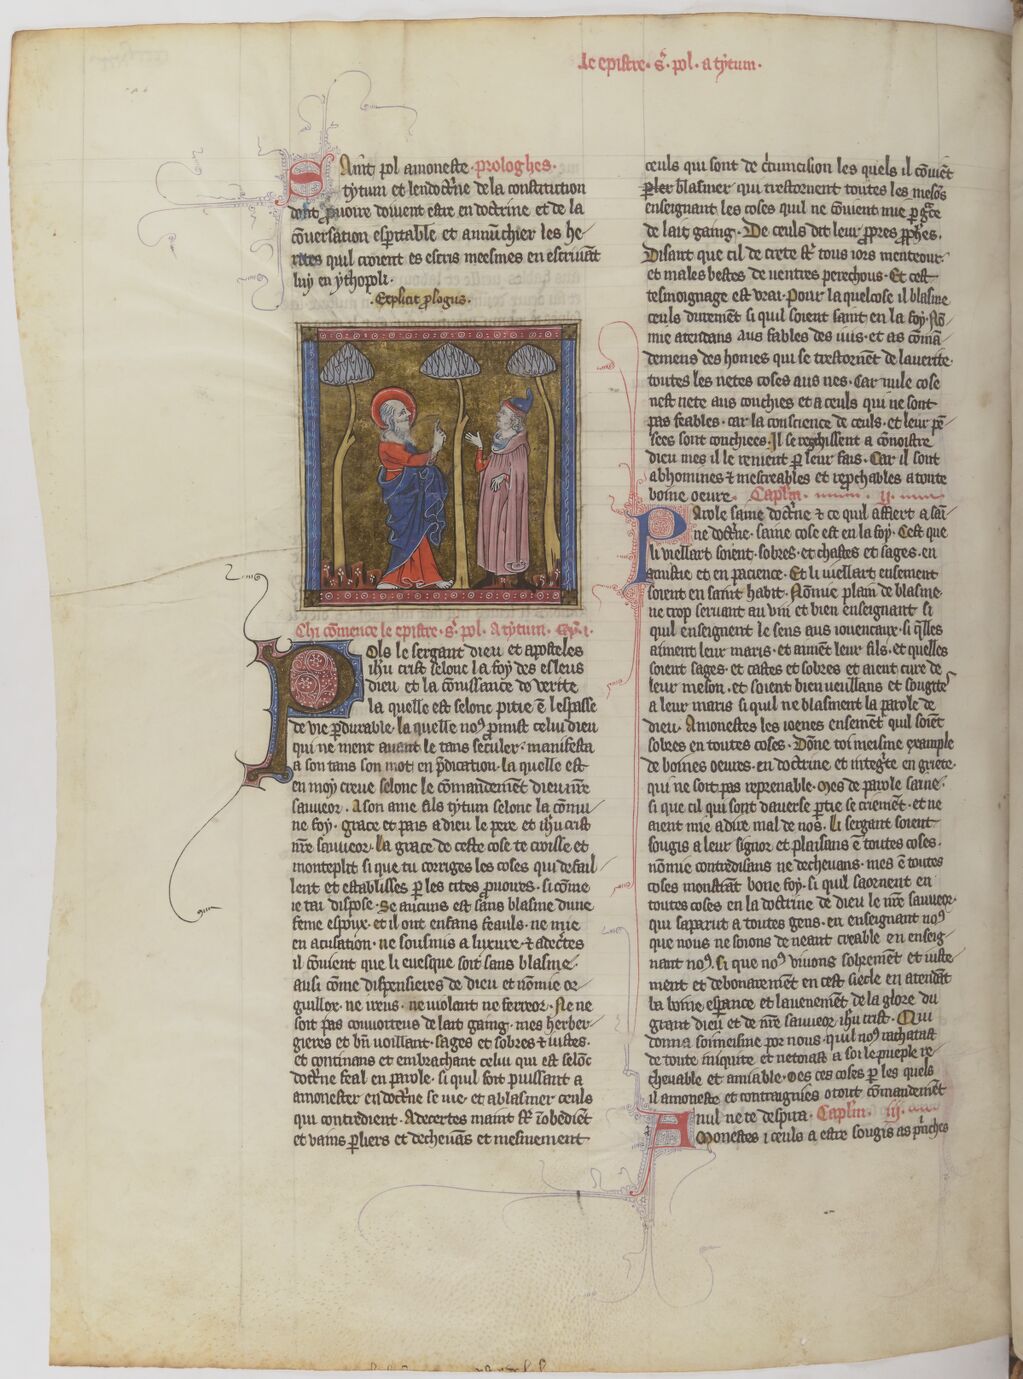 .Le epistre. s̄. pol. a tytum.
Saint pol amoneste. prologhes.
tytum et lendoctⁱne de la constitution
dont p̱uoire doiuent estre en doctrine et de la
cōuersation esp̄itable et anūnchier les he/
rites quil croient es escris meesmes en escriuāt
luy en ythopoli.
.Explicit p̱logus.
Chi cōmence le epistre. s̄. pol. a tytum. cap̄. i.
Pols le sergant dieu et aposteles
ihū crist selonc la foy des esleus
dieu et la cōnissance de verite
la quelle est selonc pitie ē lespasse
de vie p̱durable. la quelle noꝰ p̱mist celui dieu
qui ne ment auant le tans seculer. manifesta
a son tans son mot en p̄dication. la quelle est
en moy creue selonc le cōmandemēt dieu nr̄e
sauueor. A son amie fils tytum selonc la cōmu/
ne foy. grace et pais a dieu le pere et ihū crist
nr̄e sauueor. La grace de ceste cose te croisse et
monteplit si que tu corriges les coses qui defail/
lent et establisses p̱ les cites p̱uoires. si cōme
ie tai dispose. Se aucuns est sans blasme dune
feme espoux. et il ont enfans feauls. ne mie
en acusation. ne sousmis a luxure. ⁊ adec̄tes
il cōuient que li euesque soit sans blasme.
ausi cōme dispensieres de dieu et nōmie or/
guillox. ne irens. ne violant ne ferreor. Ne ne
soit pas conuoiteus de lait gaing. mes herber/
gieres et bn̄ voillant. sages et sobres ⁊ iustes.
et continans et embrachant celui qui est selōc
doctⁱne feal en parole. si quil soit puissant a
amonester en doctⁱne se vie. et a blasmer ceuls
qui contredient. Adecertes maint st̄ īobediēt
et vains p̱liers et decheuās et mesmement
ceuls qui sont de c̄cuncision les quels il cōuiēt
p̱ler blasmer qui trestornent toutes les mesōs
enseignant les coses quil ne cōuient mie p̱ gᵃce
de lait gaing. De ceuls dit leur p̱pres p̱phēs.
Disant que cil de crete st̄ tous iors menteour.
et males bestes de uentres perechous. Et cest
tesmoignage est vrai. Pour la quelcose il blasme
ceuls duremēt si quil soient saint en la foy. Nō
mie atendans aus fables des iuis. et as cōmā/
demens des homes qui se trestornēt de la uerite.
toutes les netes coses aus nes. Car nule cose
nest nete aus conchies et a ceuls qui ne sont
pas feables. car la conscience de ceuls. et leur pē/
sees sont conchiees. Il se regehissent a cōnoistre
dieu mes il le renient p̱ leur fais. Car il sont
abhomines ⁊ mescreables et rep̱chables a toute
boine oeure. Capl̄m. ii.
Parole saine doctⁱne ⁊ ce quil affiert a sai/
ne doctⁱne. saine cose est en la foy. Cest que
li viellart soient. sobres. et chastes et sages. en
et en pacience. Et li viellart ensement
soient en saint habit. Nōmie plain de blasme.
ne trop seruant au vin et bien enseignant si
quil enseignent le sens aus iouencaux. si q̄lles
aiment leur maris. et aimēt leur fils. et quelles
soient sages. et castes et sobres et aient cure de
leur meson. et soient bien ueillans et sougites
a leur maris si quil ne blasment la parole de
dieu. Amonestes les ioenes ensemēt quil soiēt
sobres en toutes coses. Dōne toi meisme exemple
de boines oeures. en doctrine et integᵉte en griete.
qui ne soit pas reprenable. Mes de parole saine.
si que cil qui sont dauerse p̱tie se criemēt. et ne
aient mie a dire mal de nos. Li sergant soient
sougis a leur signor et plaisans ē toutes coses.
nōmie contredisans ne decheuans. mes ē toutes
coses monstrāt bone foy. si quil saornent en
toutes coses en la doctrine de dieu le nr̄e sauueor.
qui saparut a toutes gens. en enseignant noꝰ
que nous ne soions de neant creable en enseig/
nant noꝰ. si que noꝰ viuons sobremēt et iuste/
ment et debonairemēt en cest siecle en atendāt
la boine esp̄ance et lauenemēt de la glore du
grant dieu et de nr̄e sauueor ihū crist. Qui
donna soimeisme por nous. quil noꝰ rachatast
de toute iniquite et netoiast a soi le pueple re/
cheuable et amiable. Mes ces coses p̱ les quels
il amoneste et contraignies o tout cōmandemēt
Nul ne te despita. Capl̄m. iii.
Amonestes i ceuls a estre sougis as pⁱnches